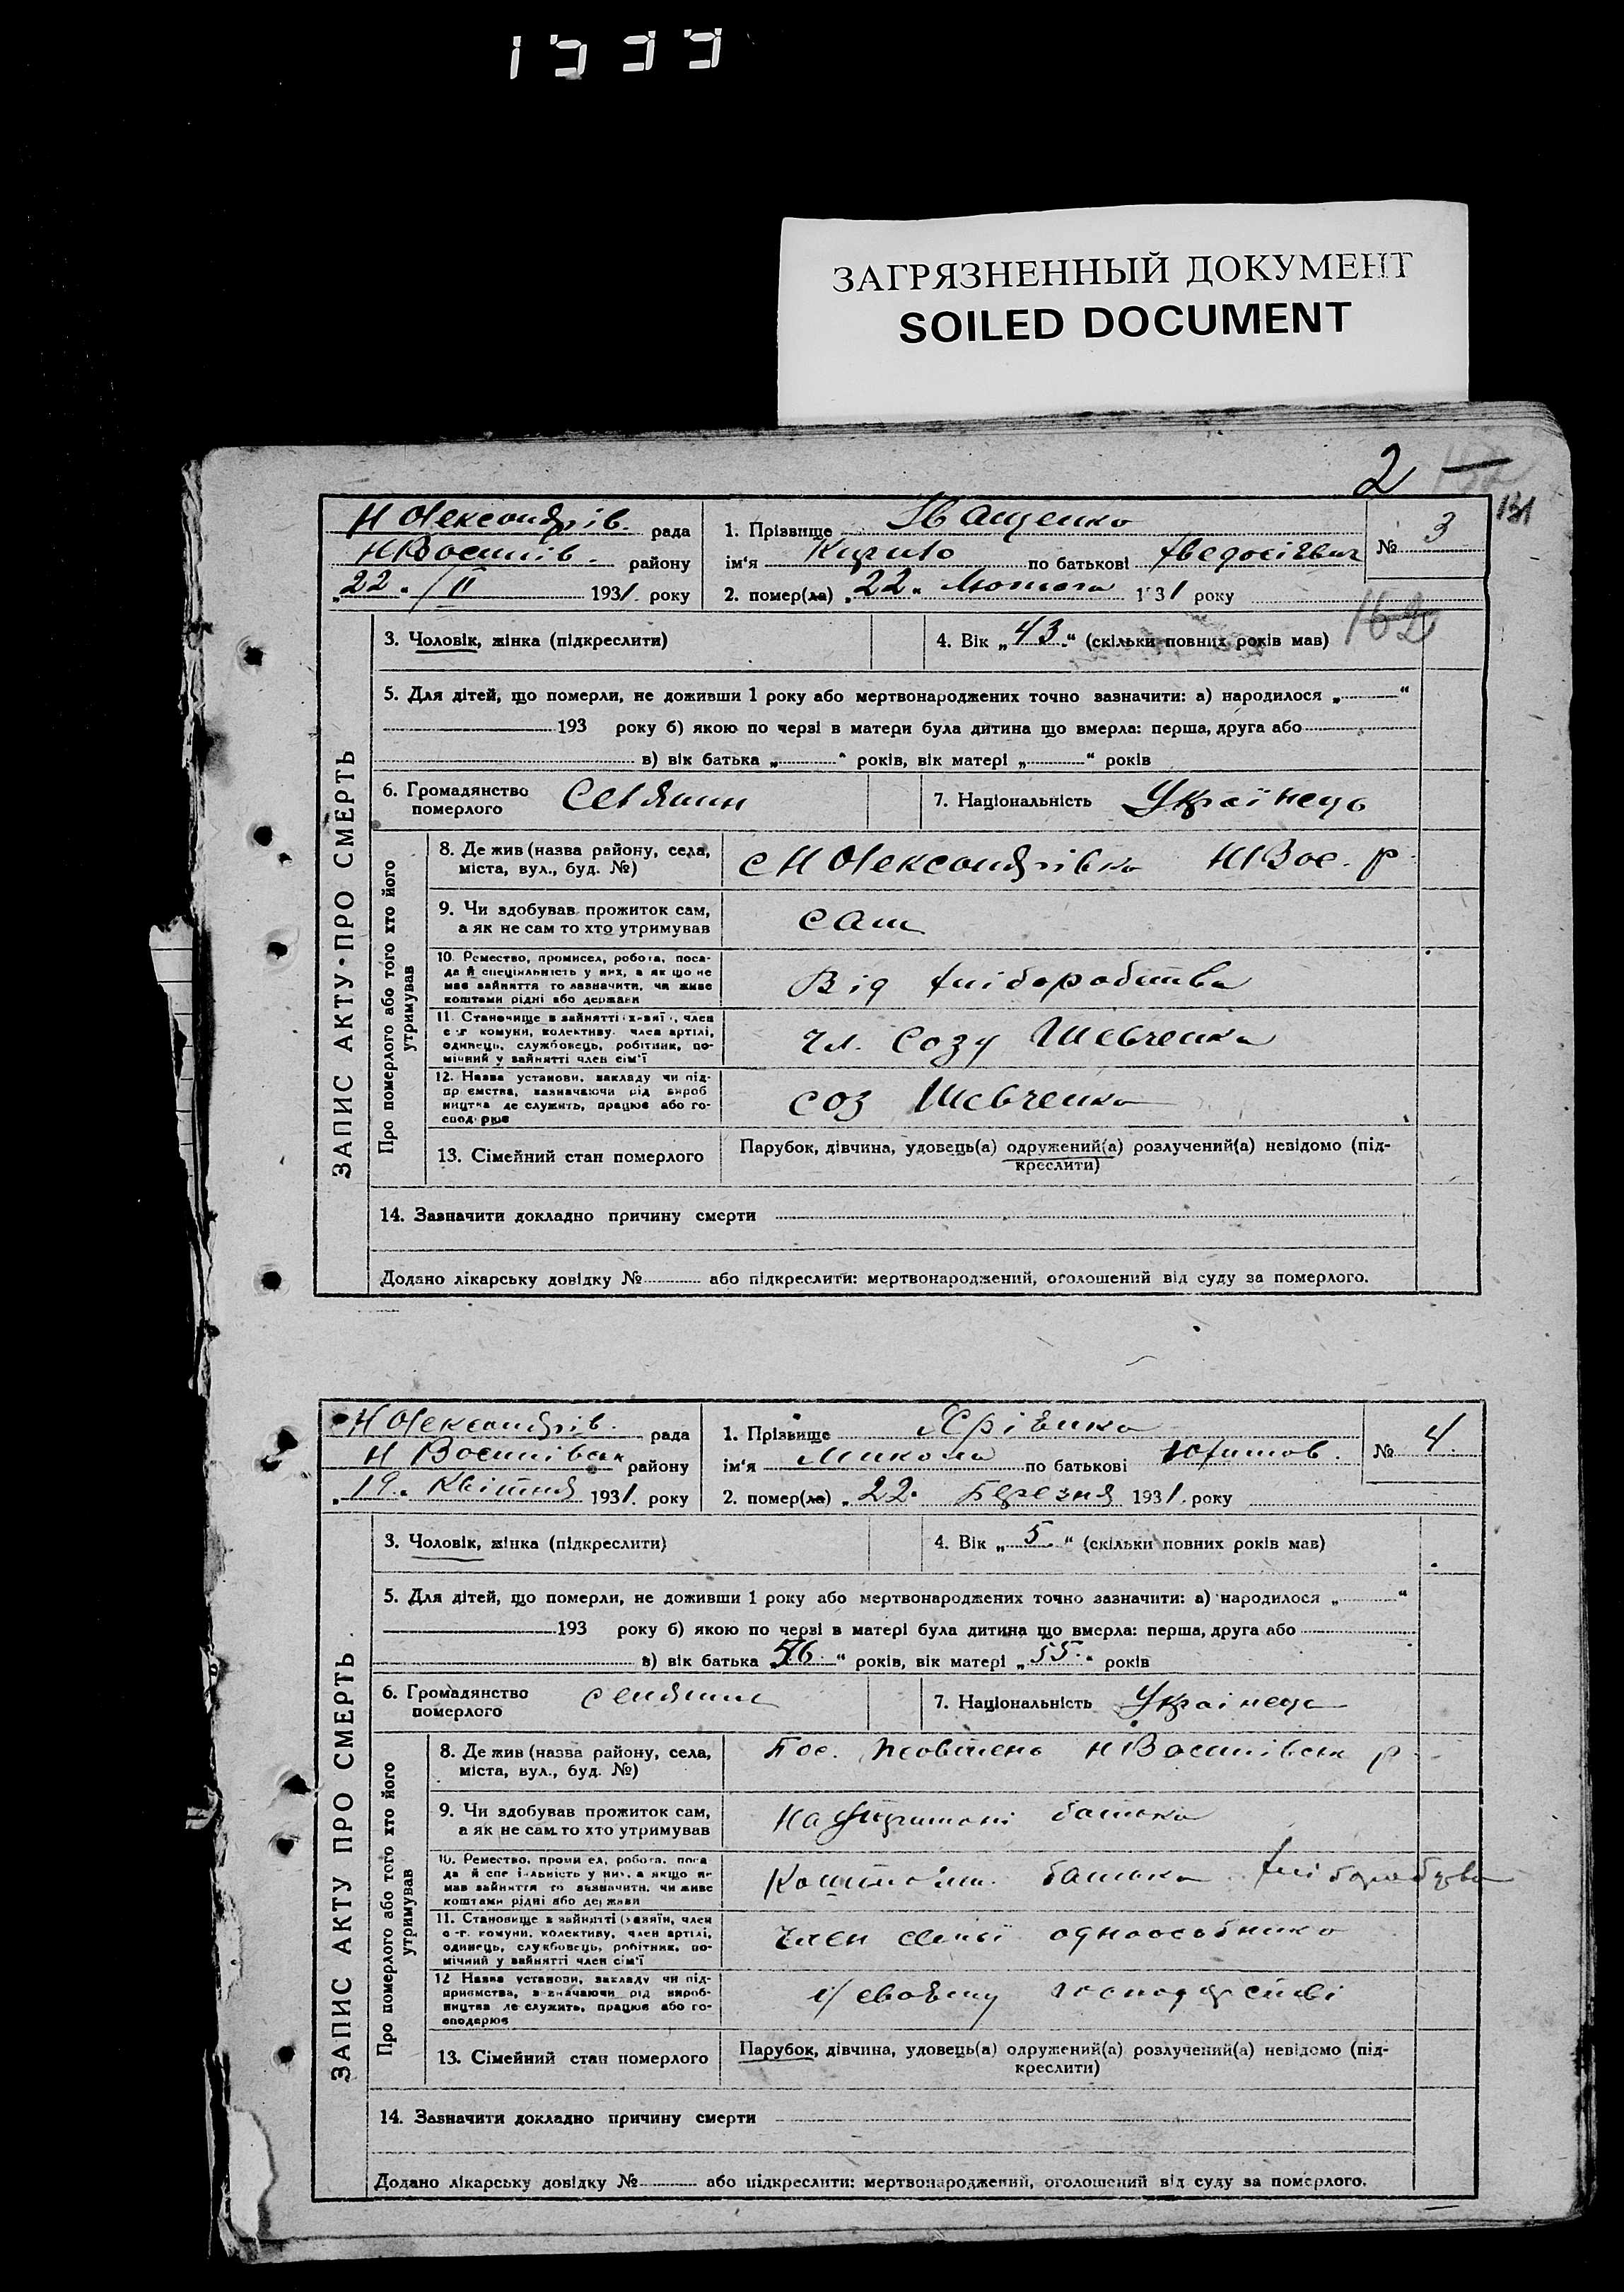 ЗАГРЯЗНЕННЫЙ ДОКУМЕНТ
SOILED DOCUMENT
2
131
Н Олександрів. рада
Н Воєнпів. району
„22“ / II 1931. року
1. Прізвище Іващенко
ім'я Кирило по батькові Хведосієвич
2. помер(ла) „22“ Лютого 1931 року
№ 3
162
ЗАПИС АКТУ · ПРО СМЕРТЬ
3. Чоловік, жінка (підкреслити)
4. Вік „43“ (скільки повних років мав)
5. Для дітей, що померли, не доживши 1 року або мертвонароджених точно зазначити: а) народилося „ “
193 року б) якою по черзі в матери була дитина що вмерла: перша, друга або
в) вік батька „ “ років, вік матері „ “ років
6. Громадянство
померлого
Селянин
7. Національність Українець
Про померлого або того хто його
утримував
8. Де жив (назва району, села,
міста, вул., буд. №)
с Н Олександрівка НВоє. р
9. Чи здобував прожиток сам,
а як не сам то хто утримував
сам
10. Ремество, промисел, робота, поса-
да й спеціяльність у них, а як що не
мав зайняття то зазначити, чи живе
коштами рідні або держави
Від хліборобства
11. Становище в зайнятті член
комуни, колективу, член артілі,
одинець, службовець, робітник, по-
мічний у зайнятті член сім'ї
чл. Созу Шевченка
12. Назва установи, закладу чи під-
приємства, зазначаючи рід вироб
ництва де служить, працює або го-
сподарює
соз Шевченка
13. Сімейний стан померлого
Парубок, дівчина, удовець(а) одружений(а) розлучений(а) невідомо (під-
креслити)
14. Зазначити докладно причину смерти
Додано лікарську довідку № або підкреслити: мертвонароджений, оголошений від суду за померлого.
Н Олександрів. рада
Н Воєнпівськ району
„19“ Квітня 1931. року
1. Прізвище
ім'я Микола по батькові Юхимов.
2. помер(ла) „22“ Березня 1931. року
№ 4.
ЗАПИС АКТУ ПРО СМЕРТЬ
3. Чоловік, жінка (підкреслити)
4. Вік „5“ (скільки повних років мав)
5. Для дітей, що померли, не доживши 1 року або мертвонароджених точно зазначити: а) народилося „ “
193 року б) якою по черзі в матері була дитина що вмерла: перша, друга або
в) вік батька „56“ років, вік матері „55“ років
6. Громадянство
померлого
селянин
7. Національність Українець
Про померлого або того хто його
утримував
8. Де жив (назва району, села,
міста, вул., буд. №)
Пос. Жовтень Н Воєнпівськ р
9. Чи здобував прожиток сам,
а як не сам то хто утримував
На утриманні батька
10. Ремество, промисел, робота, поса-
да й спеціяльність у них, а якщо не
мав зайняття то зазначити, чи живе
коштами рідні або держави
Коштами батька
11. Становище в зайнятті (хазяїн, член
комуни, колективу, член артілі,
одинець, службовець, робітник, по-
мічний у зайнятті член сім'ї
член сімї одноосібника
12 Назва установи, закладу чи під-
приємства, зазначаючи рід вироб-
ництва де служить, працює або го-
сподарює
у своєму господарстві
13. Сімейний стан померлого
Парубок, дівчина, удовець(а) одружений(а) розлучений(а) невідомо (під-
креслити)
14. Зазначити докладно причину смерти
Додано лікарську довідку № або підкреслити: мертвонароджений, оголошений від суду за померлого.